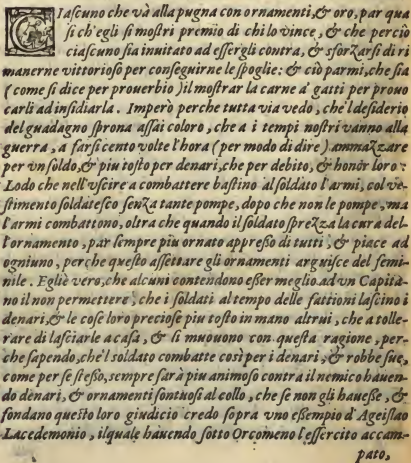 CIascuno che và alla pugna con ornamenti, & oro, par qua
si ch'egli si mostri premio di chi lo vince, & che perciò
ciascuno sia inuitato ad essergli contra, & sforzarsi di ri
manerne vittorioso per conseguirne le spoglie: & ciò parmi, che sia
(come si dice per prouerbio) il mostrar la carne a' gatti per prouo
carli ad insidiarla. Imperò perche tutta via vedo, che'l desiderio
del guadagno sprona assai coloro, che a i tempi nostri vanno alla
guerra, a farsi cento volte l'hora (per modo di dire) ammazzare
per vn soldo, & piu tosto per denari, che per debito, & honòr loro:
Lodo che nell'vscire a combattere bastino al soldato l'armi, col ve-
stimento soldatesco senza tante pompe, dopo che non le pompe, ma
l'armi combattono, oltra che quando il soldato sprezza la cura del-
l'ornamento, par sempre piu ornato appresso di tutti, & piace ad
ogniuno, perche questo assettare gli ornamenti arguisce del femi-
nile. Egliè vero, che alcuni contendono esser meglio ad vn Capita-
no il non permettere, che i soldati al tempo delle fattioni lascino i
denari, & le cose loro preciose piu tosto in mano altrui, che a tolle-
rare di lasciarle a casa, & si muouono con questa ragione, per-
che sapendo, che'l soldato combatte così per i denari, & robbe sue,
come per se stesso, sempre sarà piu animoso contra il nemico hauen-
do denari, & ornamenti sontuosi al collo, che se non gli hauesse, &
fondano questo loro giudicio credo sopra vno essempio d'Ageislao
Lacedemonio, ilquale hauendo sotto Orcomeno l'essercito accam-
pato,